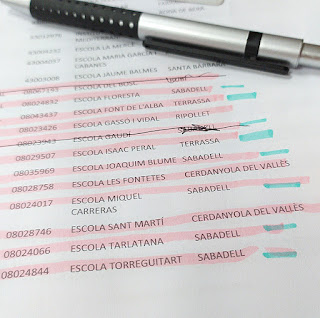 ESCOLA MARIA GARCÍA
CABANES
ESCOLA JAUME BALMES SANTA BÀRBARA
08067193 ESCOLA DEL BOSC
08024832 ESCOLA FLORESTA SABADELL
08043437 ESCOLA FONT DE L'ALBA TERRASSA
08023426 ESCOLA GASSO I VIDAL RIPOLLET
08023943 ESCOLA GAUDÍ
08029507 ESCOLA ISAAC PERAL TERRASSA
08035969 ESCOLA JOAQUIM BLUME SABADELL
08028758 ESCOLA LES FONTETES CERDANYOLA DEL VALLÈS
08024017 ESCOLA MIQUEL SABADELL
CARRERAS
08028746 ESCOLA SANT MARTÍ CERDANYOLA DEL VALLÈS
08024066 ESCOLA TARLATANA SABADELL
08024844 ESCOLA TORREGUITART SABADELL